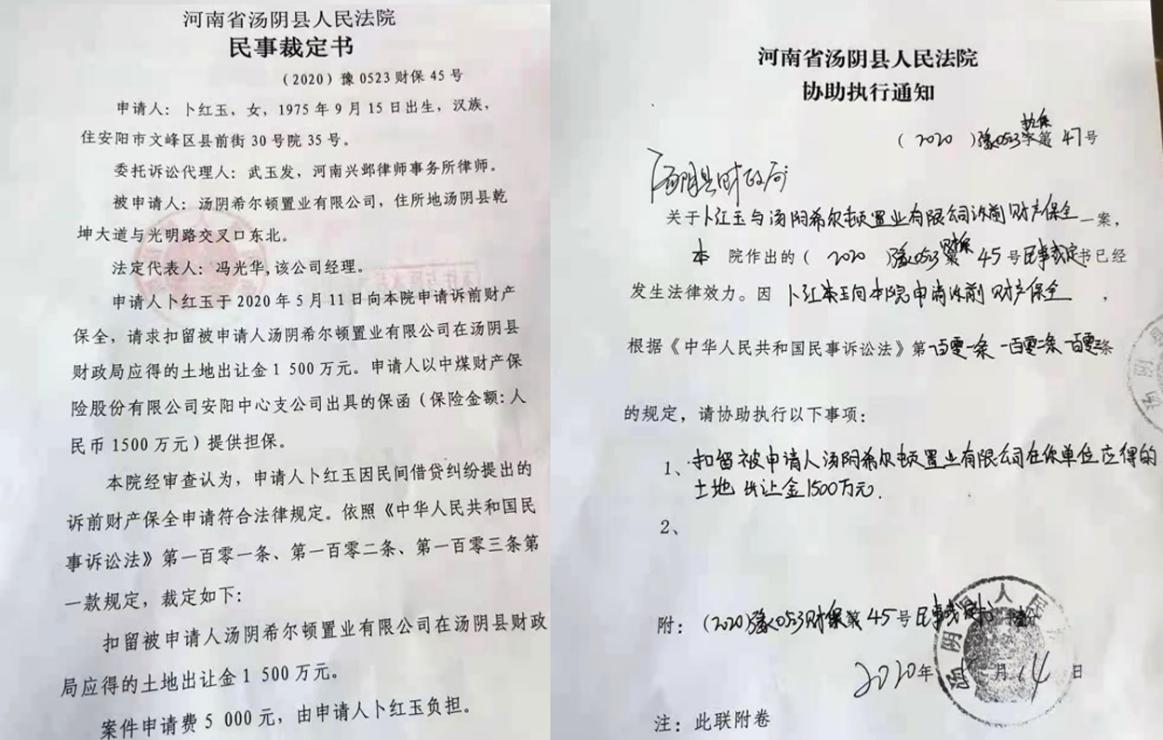 河南省汤阴县人民法院
民事裁定书
（2020）豫 0523 财保 45 号
申请人：卜红玉，女，1975 年 9 月 15 日出生，汉族，
住安阳市文峰区县前街 30 号院 35 号。
委托诉讼代理人：武玉发，河南兴邺律师事务所律师。
被申请人：汤阴希尔顿置业有限公司，住所地汤阴县乾
坤大道与光明路交叉口东北。
法定代表人：冯光华,该公司经理。
申请人卜红玉于 2020 年 5 月 11 日向本院申请诉前财产
保全，请求扣留被申请人汤阴希尔顿置业有限公司在汤阴县
财政局应得的土地出让金 1 500 万元。申请人以中煤财产保
险股份有限公司安阳中心支公司出具的保函（保险金额:人
民币 1500 万元）提供担保。
本院经审查认为，申请人卜红玉因民间借贷纠纷提出的
诉前财产保全申请符合法律规定。依照《中华人民共和国民
事诉讼法》第一百零一条、第一百零二条、第一百零三条第
一款规定，裁定如下：
扣留被申请人汤阴希尔顿置业有限公司在汤阴县财政
局应得的土地出让金 1 500 万元。
案件申请费 5 000 元，由申请人卜红玉负担。
河南省汤阴县人民法院
协助执行通知
（2020）豫0523执保字第 47 号
汤阴县财政局
关于卜红玉与汤阴希尔顿置业有限公司诉前财产保全一案，
本 院作出的（2020）豫0523财保第 45 号民事裁定书已经
发生法律效力。因 卜红玉向本院申请诉前财产保全，
根据《中华人民共和国民事诉讼法》第一百零一条 一百零二条 一百零三条
的规定，请协助执行以下事项：
1、扣留被申请人汤阴希尔顿置业有限公司在你单位应得的
土地出让金1500万元.
2、
附：（2020）豫0523财保第 45 号民事裁定书
2020年 月 14 日
注：此联附卷